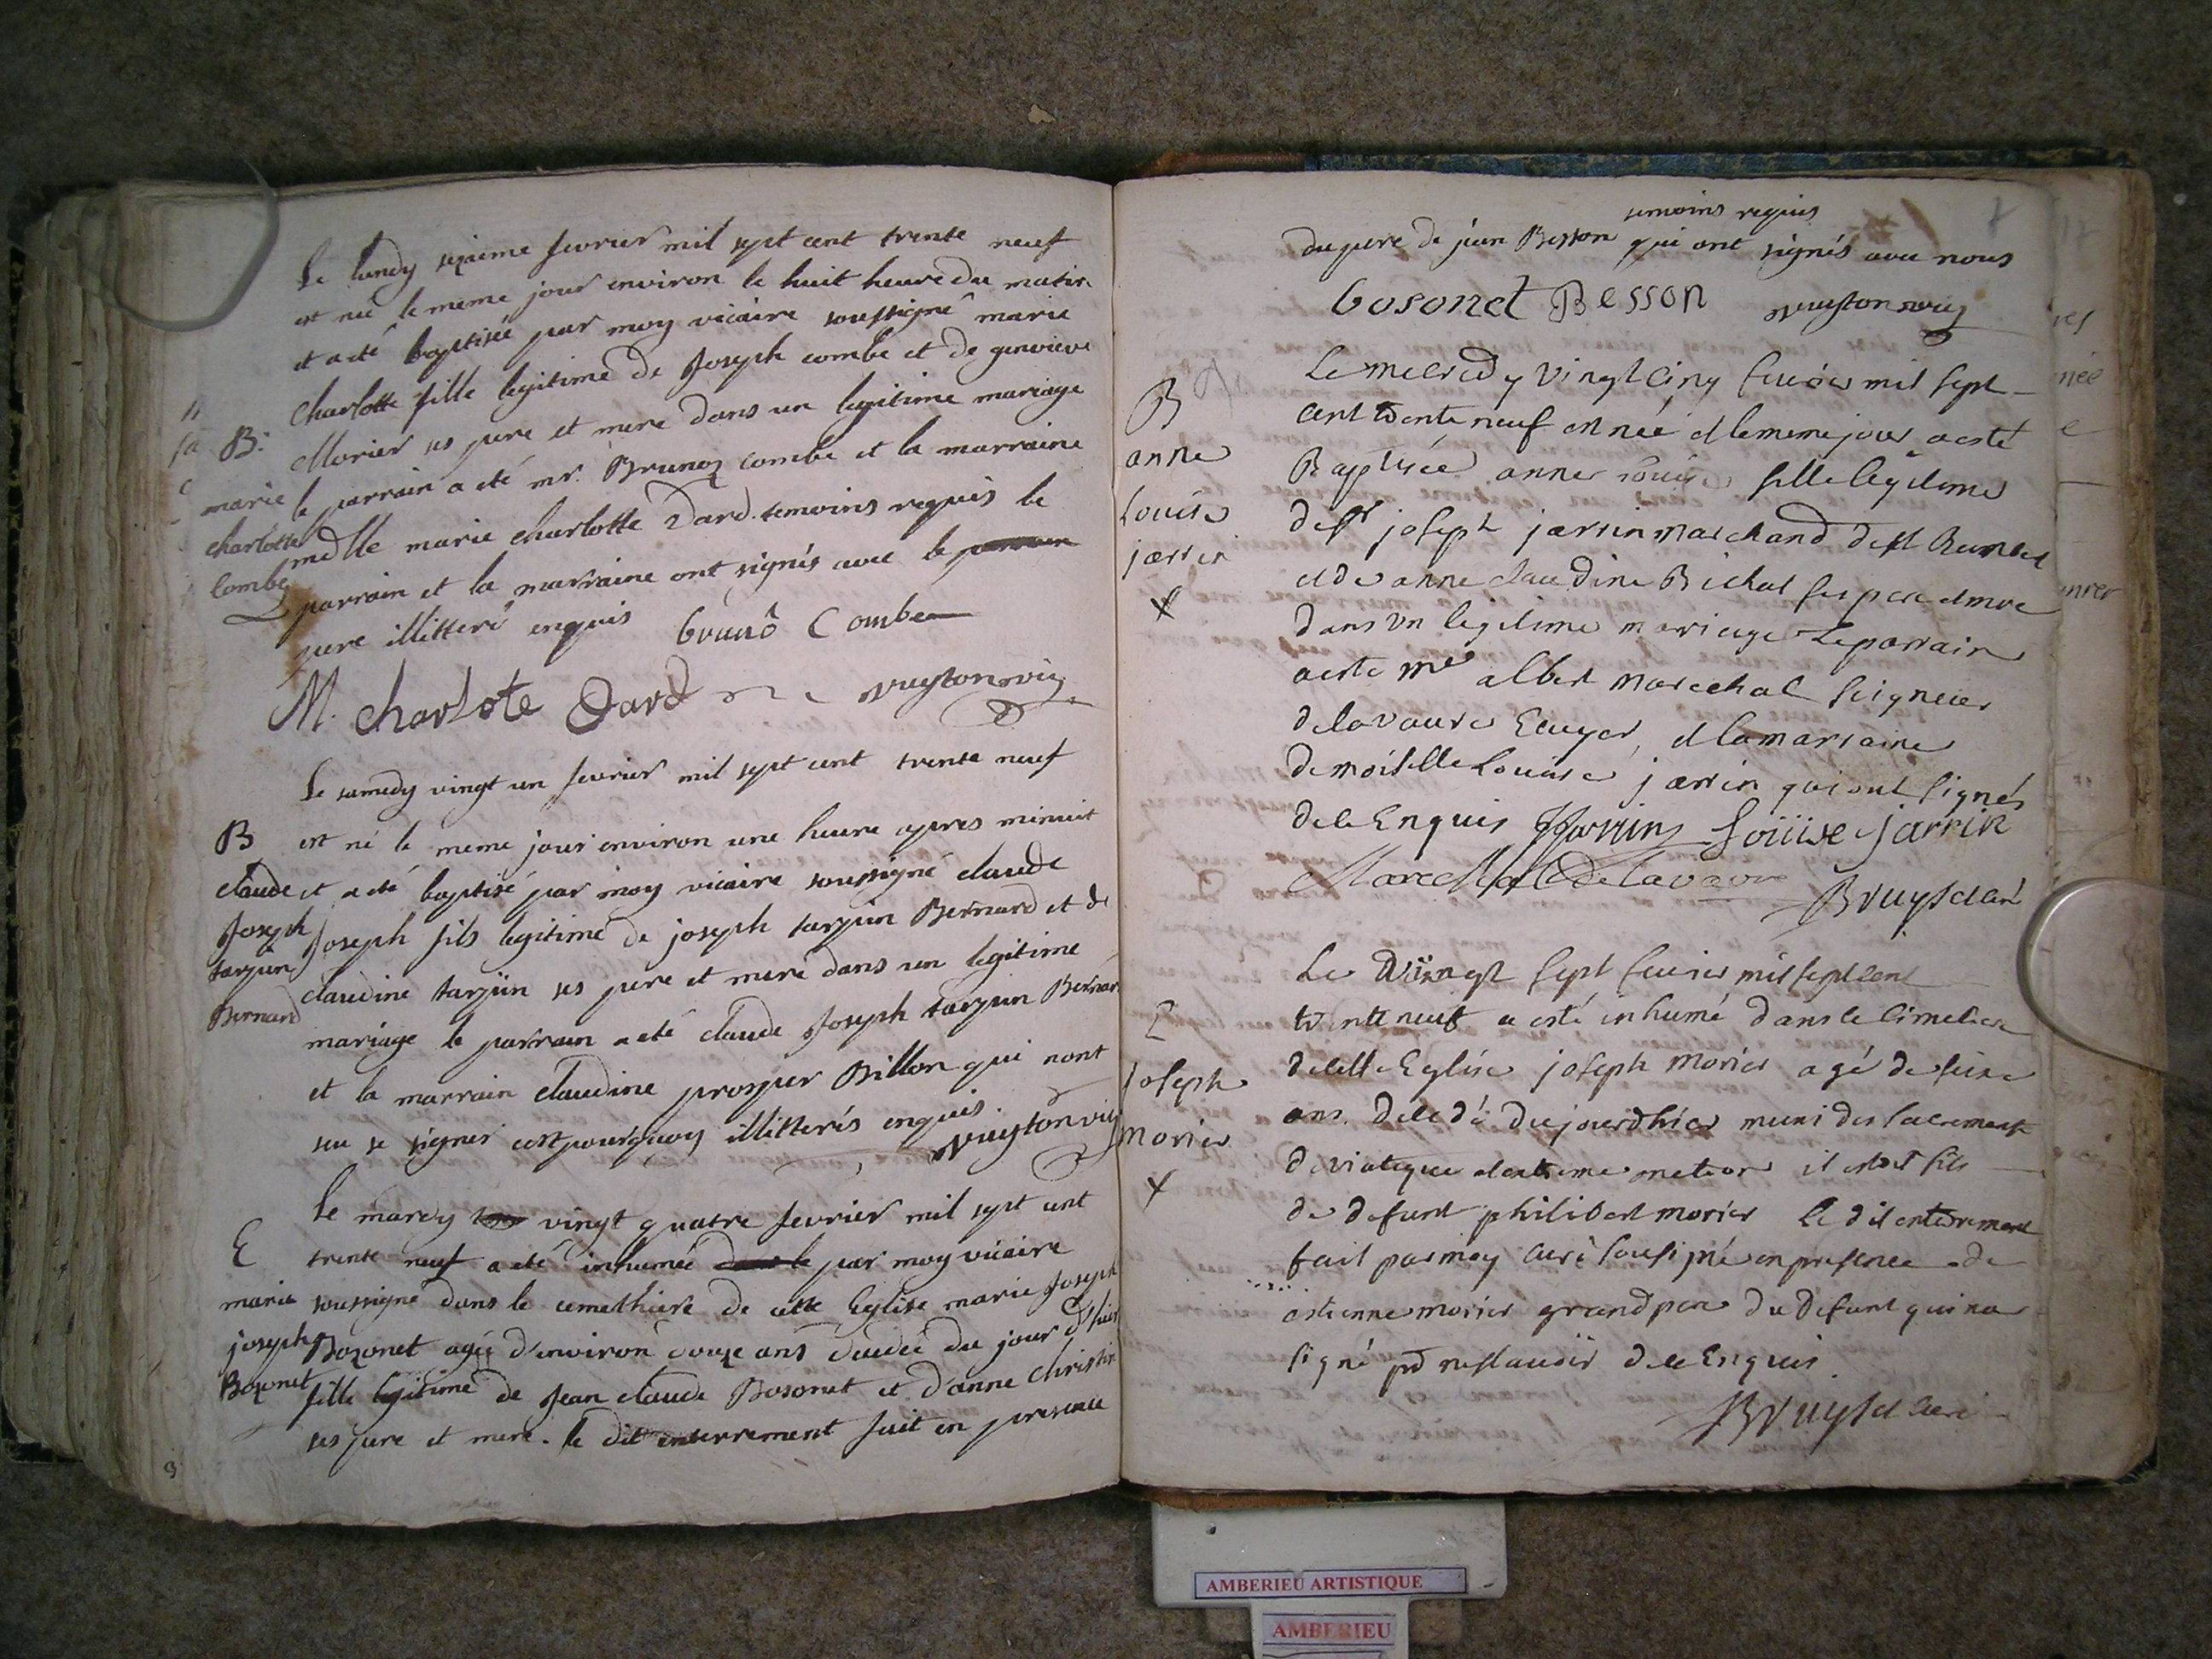 Le lundy seziéme fevrier mil sept cent trente neuf
est née le meme jour environ le huit heure du matin
et a eté baptisée par moy vicaire soussigné marie
charlotte fille legitime de Joseph combe et de genvieve
B. Morier ses pere et mere dans un legitime mariage
marie le parrain a eté mr. Bruno combe et la marraine
charlotte mdlle marie charlotte Dard. temoins requis le
Combe parrain et la marraine ont signés avec le
pere illitteré enquis Brunô Combe
M. charlote Dard
Le samedy vingt un fevrier mil sept cent trente neuf
B est né le meme jour environ une heure apres minuit
claude et a eté baptisé par moy vicaire soussigné claude
Joseph Joseph fils legitime de joseph tarpin Bernard et de
tarpin claudine tarpin ses pere et mere dans un legitime
Bernard mariage le parrain a eté claude Joseph tarpin Bernar
et la marrain claudine prosper Billon qui nont
seu se signer cest pourquoy illitterés enquis.
Le mardy vingt quatre fevrier mil sept cent
E trente neuf a eté inhumée par moy vicaire
marie soussigné dans le cemethiere de cette Eglise marie Joseph
joseph Bozonet agée d'environ douze ans decedée du jour d'hier
Bozonet fille legitime de Jean claude Bosonet et d'anne christin
ses pere et mere. le dit enterrement fait en presence
temoins requis
du pere de jean Besson qui ont signés avec nous
bosonet Besson
Le mecredy vingt cinq fevrier mil sept
B cent trente neuf est née et le meme jour a esté
anne Baptisée anne louise fille legitime
Louise de sr joseph jarrin marchand de st
jarrin et de anne claudine Bichat ses pere et mere
x dans un legitime mariage Le parrain
a esté mre albert marechal seigneur
de la vavre Ecuyer, et la marraine
demoiselle Louise jarrin qui ont signés
de ce Enquis JJarrin Loüise jarrin
Marechal De lavavre
Bruyset curé
Le vingt sept fevrier mil sept cent
E trente neuf a esté inhumé dans le cimetiere
Joseph de cette Eglise joseph morier agé de seize
morier ans decedé du jourd'hier muni des sacrements
x de viatique et extreme onction il estoit fils
de defunt philibert morier le dit enterrement
fait par moy curé sousigné en presence de
estienne morier grand pere du defunt qui na
signé pr ne sçavoir de ce Enquis
Bruyset curé
AMBERIEU ARTISTIQUE
AMBERIEU